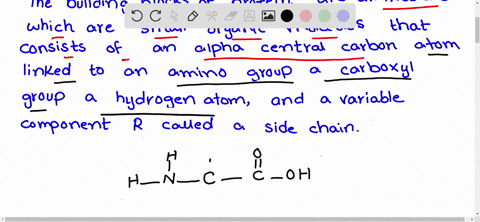 The building blocks of
which are small organic that
consists of an alpha central carbon atom
linked to an amino group a carboxyl
group a hydrogen atom, and a variable
component R called a side chain.
H O
H — N — C — C — OH